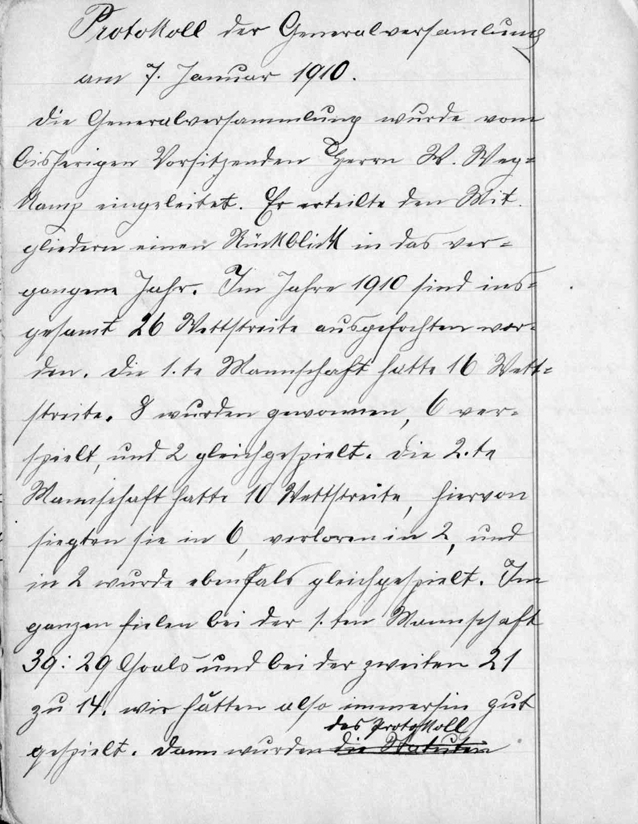 Protokoll der Generalversamlung
am 7. Januar 1910.
Die Generalversammlung wurde vom
bisherigen Vorsitzenden Herrn W. Weg-
kamp eingeleitet. Er erteilte den Mit.
gliedern einen Rückblick in das ver-
gangene Jahr. Im Jahre 1910 sind ins-
gesamt 26 Wettstreite ausgefochten wor-
den. Die 1.te Mannschaft hatte 16 Wett-
streite. 8 wurden gewonnen, 6 ver-
spielt, und 2 gleichgespielt. Die 2.te
Mannschaft hatte 10 Wettstreite, hiervon
siegten sie in 6, verloren in 2, und
in 2 wurde ebenfals gleichgespielt. Im
ganzen fielen bei der 1.ten Mannschaft
39:29 Goals und bei der zweiten 21
zu 14. wir hätten also immerhin gut
das Protokoll
gespielt. Dann wurden die Statuten